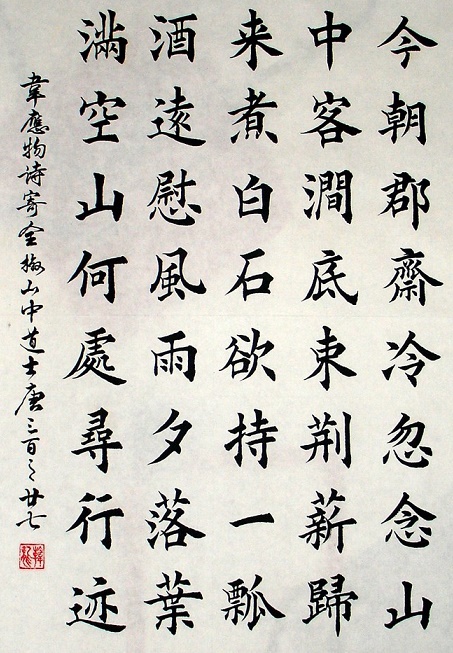 今朝郡齋冷忽念山
中客澗底束荆薪歸
来煮白石欲持一瓢
酒遠慰風雨夕落葉
滿空山何處尋行迹
韋應物詩寄全椒山中道士唐三百之廿七